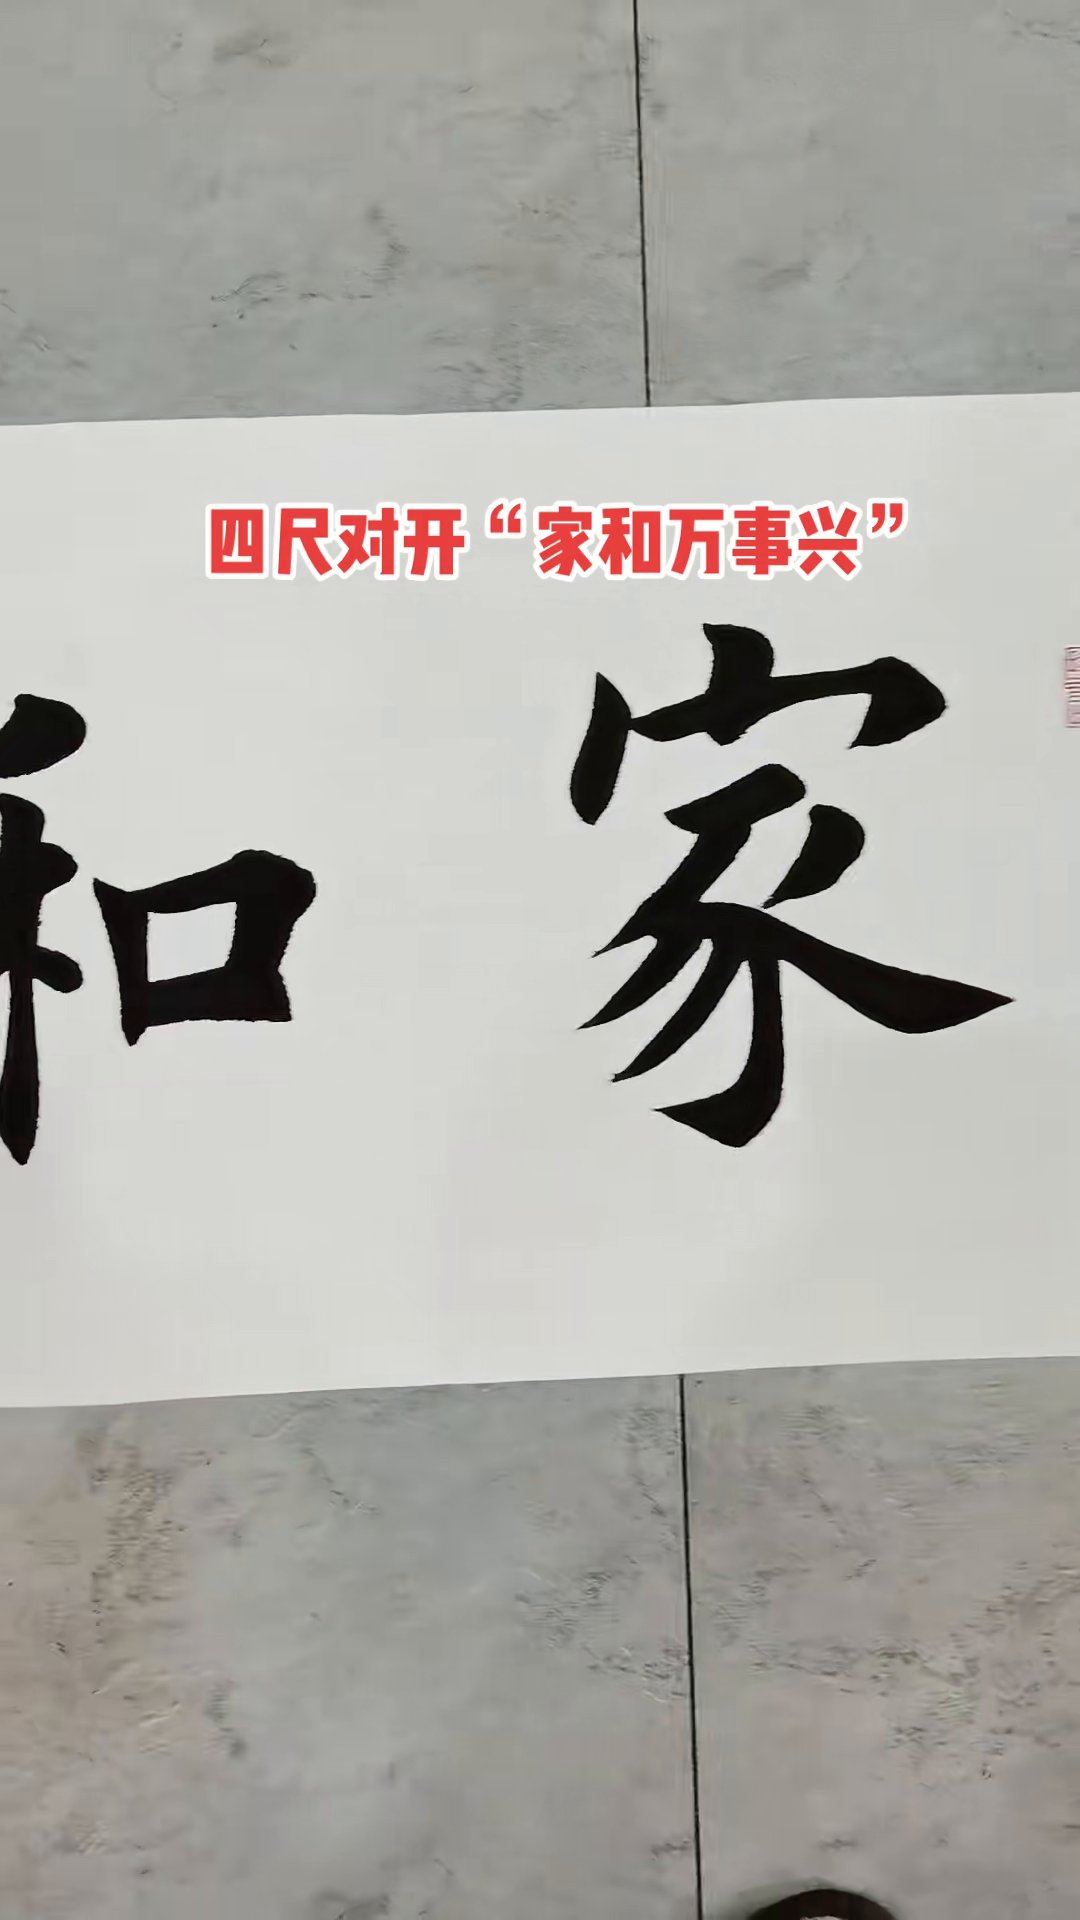 四尺对开“家和万事兴”
家和